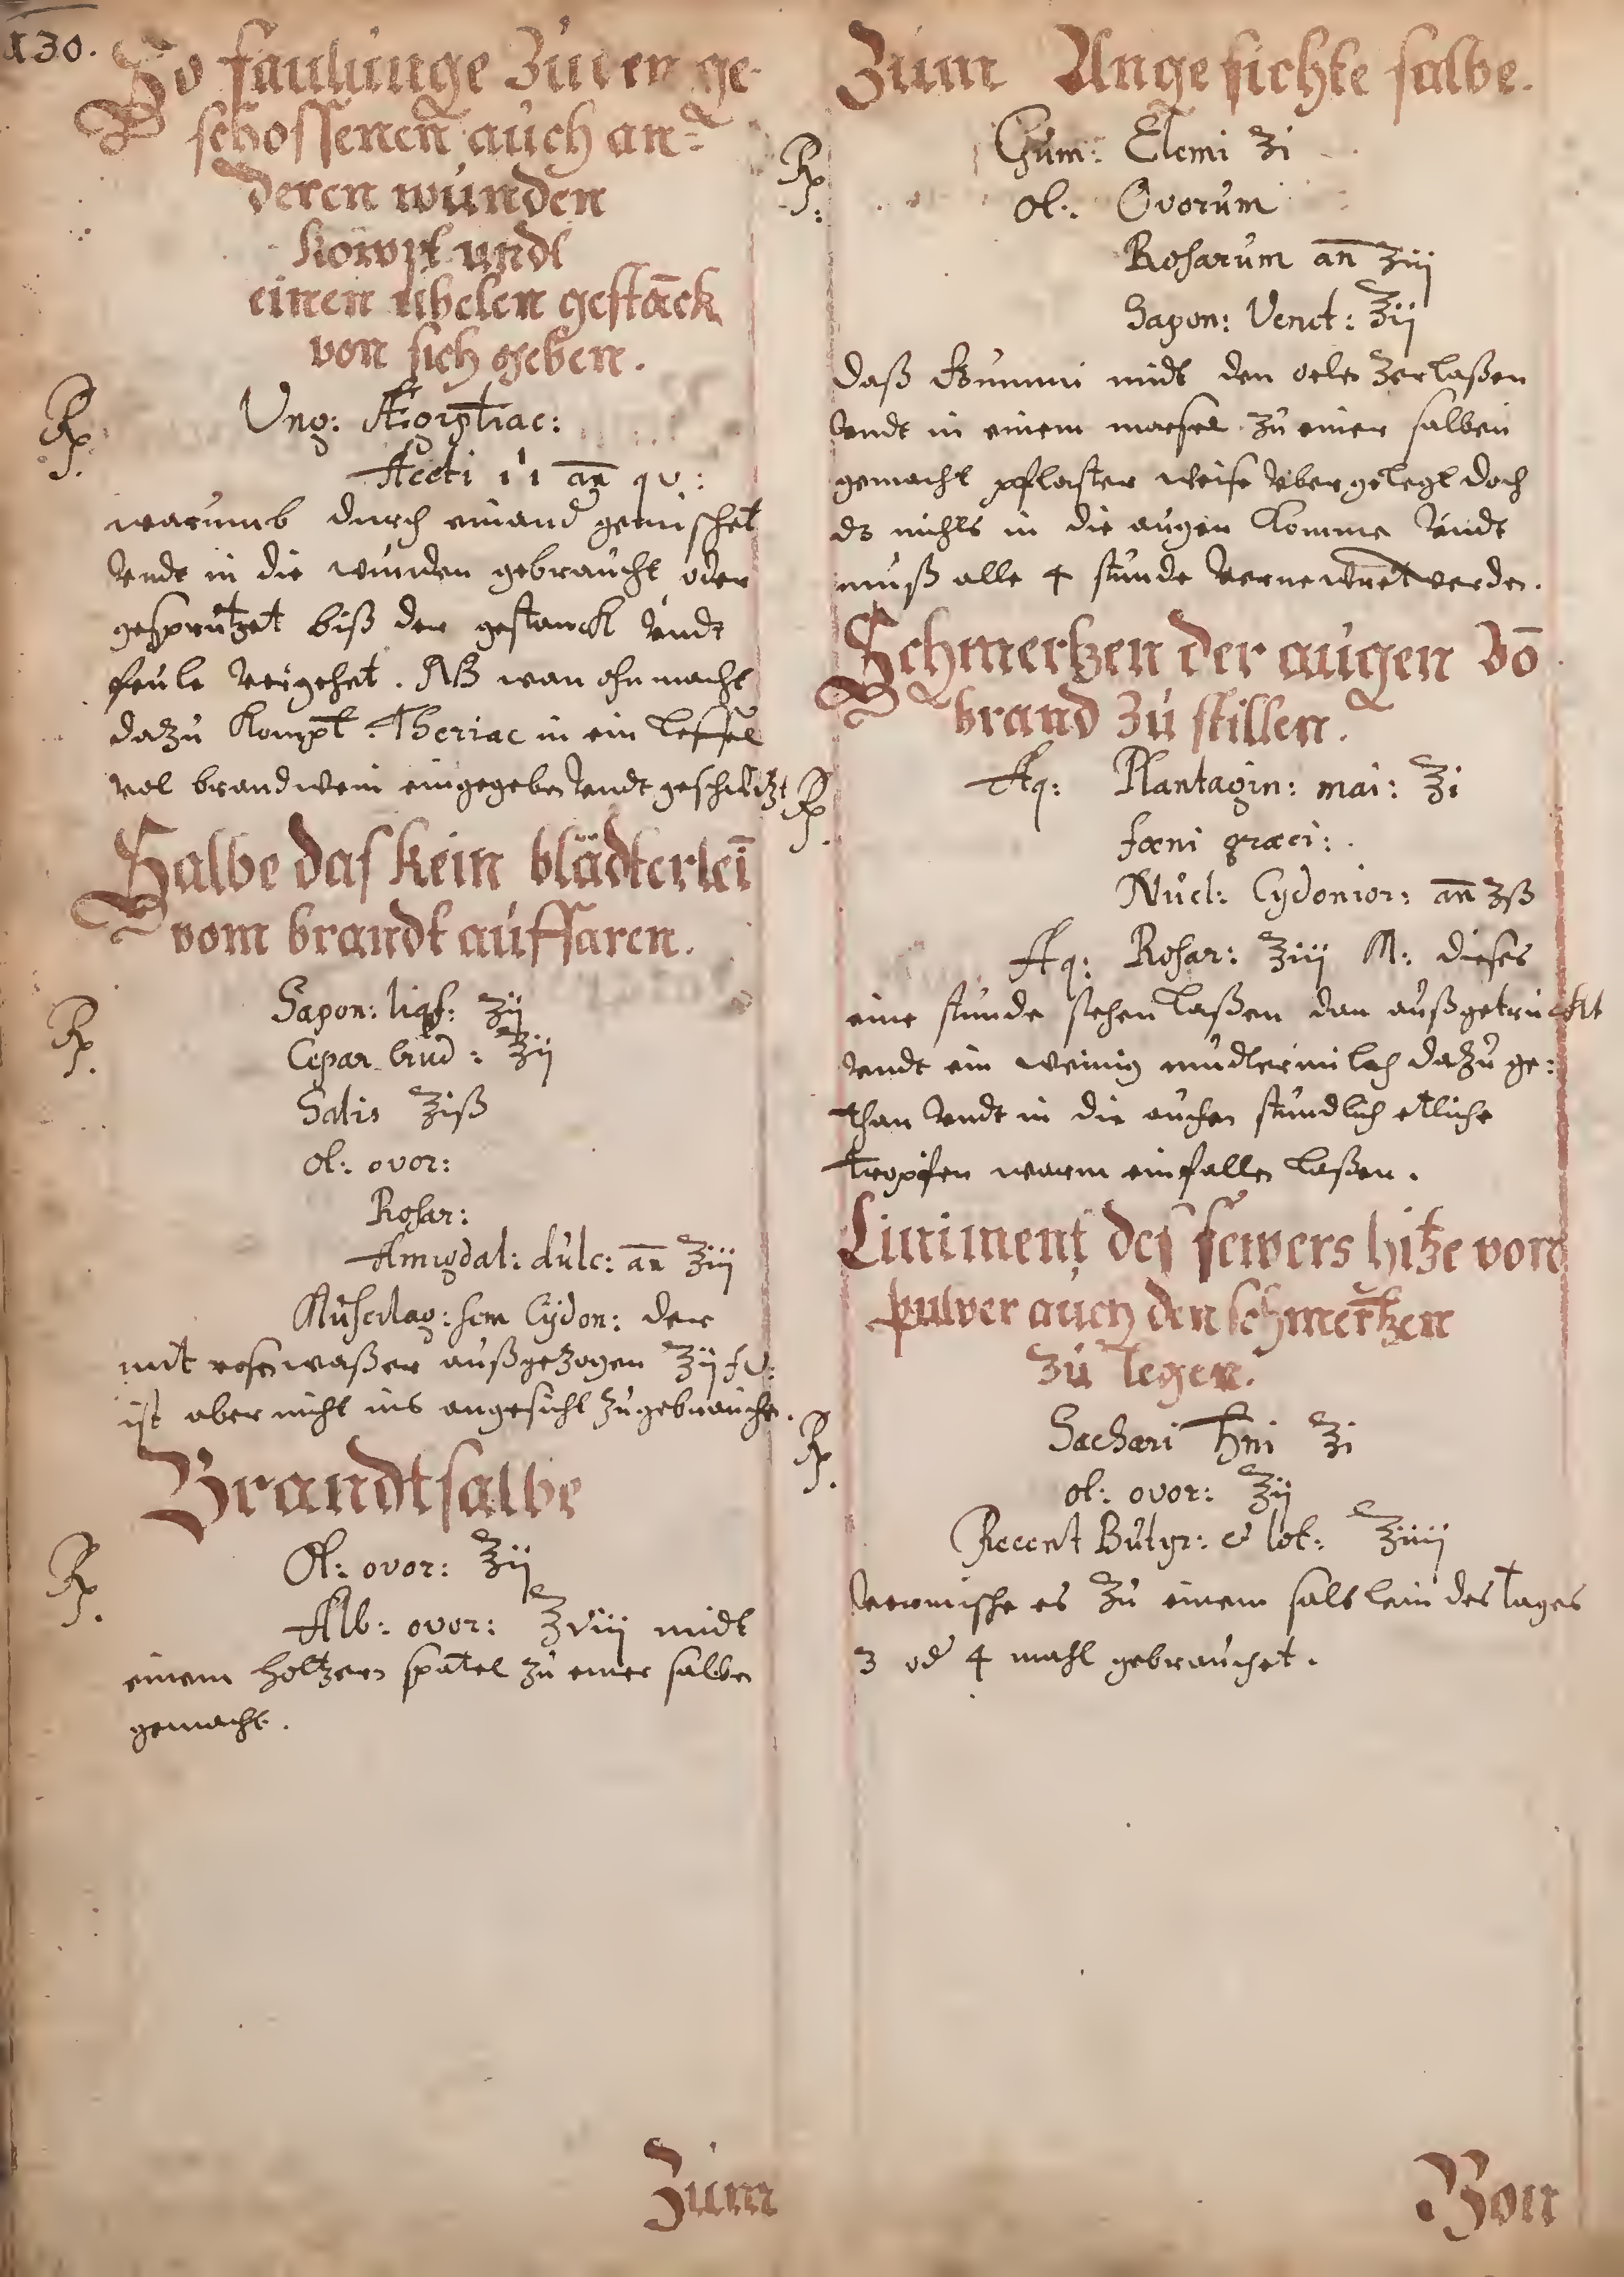 130.
So faulunge zu den ge-
schossenen auch an-
deren wunden
kompt undt
einen ubelen gestāck
von sich geben.
Rp.
Ung: Ægiptiac:
Aceti ii an̄ qv:
warumb durch einand gemischet
Vndt in die wunden gebraucht oder
gesprützet biß der gestanck Vndt
feule Vergehet. NB wan ohnmacht
dazu kompt Theriac in ein Leffel
vol brandwein eingegeben Vndt geschwitzt
Salbe das kein blädterlei
vom brandt auffaren.
Rp.
Sapon: liqf: ʒij
Cepar. crud: ʒij
Salis ʒiß
ol: ovor:
Rosar:
Amigdal: dulc: an̄ ʒiij
Muscilag: sem Cydon: der
mit rosenwaßer außgezogen ʒij
ist aber nicht ins angesicht zu gebrauchen.
Brandtsalbe
Rp.
Ol: ovor: ʒij
Alb: ovor: ʒviij midt
einem holtzern spatel zu einer salben
gemacht.
Zum
Zum Angesichte salbe.
Rp.
Gum: Elemi ʒi
ol: Ovorum
Rosarum an̄ ʒiij
Sapon: Venet: ʒij
daß Gummi midt den oelen zerlaßen
Vndt in einem morsel zu einer salben
gemacht pflaster weise Vbergelegt doch
ds nichts in die augen komme Vndt
muß alle 4 stunde Vernewret werden.
Schmertzen der augen vō
brand zu stillen.
Rp.
Aq: Plantagin: mai: ʒi
fœni græci:
Nucl: Cydonior: an̄ ʒß
Aq: Rosar: ʒiij M: dieses
eine stunde stehen Laßen dan außgetruckt
Vndt ein weinig mudtermilch dazu ge:
than Vndt in die augen stundlich etliche
tropfen warm einfallen Laßen.
Liniment des fewers hitze vom
pulver auch den schmertzen
zu legen.
Rp.
Sachari ʒi
ol: ovor: ʒij
Recent Butyr: & lot: ʒiiij
Vermische es zu einem salblein des tages
3 od 4 mahl gebrauchet.
Von